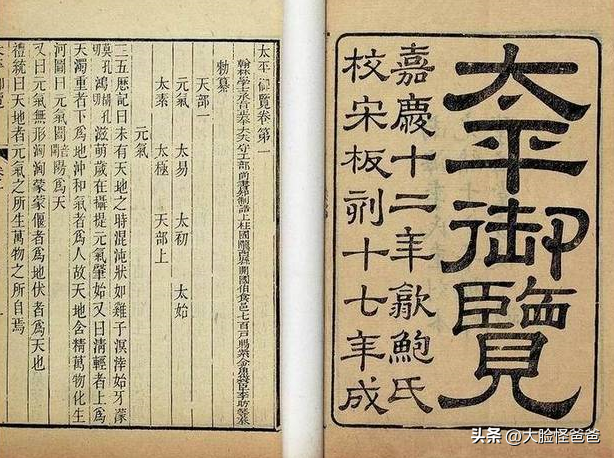 太平御覽
嘉慶十二年歙鮑氏
校宋板刻十七年成
太平御覽卷第一
翰林學士承旨正奉大夫守工部尚書知制誥上柱國隴西縣開國伯食邑七百戶賜紫金魚袋臣李昉等奉
勅纂
天部一
元氣 太易 太初 太始
太素 太極 天部上
元氣
三五歷記曰未有天地之時混沌狀如雞子溟涬始牙濛
鴻滋萌歲在攝提元氣肇始又曰清輕者上爲
天濁重者下爲地沖和氣者爲人故天地含精萬物化生
河圖曰元氣闓陽爲天
又曰元氣無形洶洶蒙蒙偃者爲地伏者爲天也
禮統曰天地者元氣之所生萬物之所自焉
头条 @大脸怪爸爸